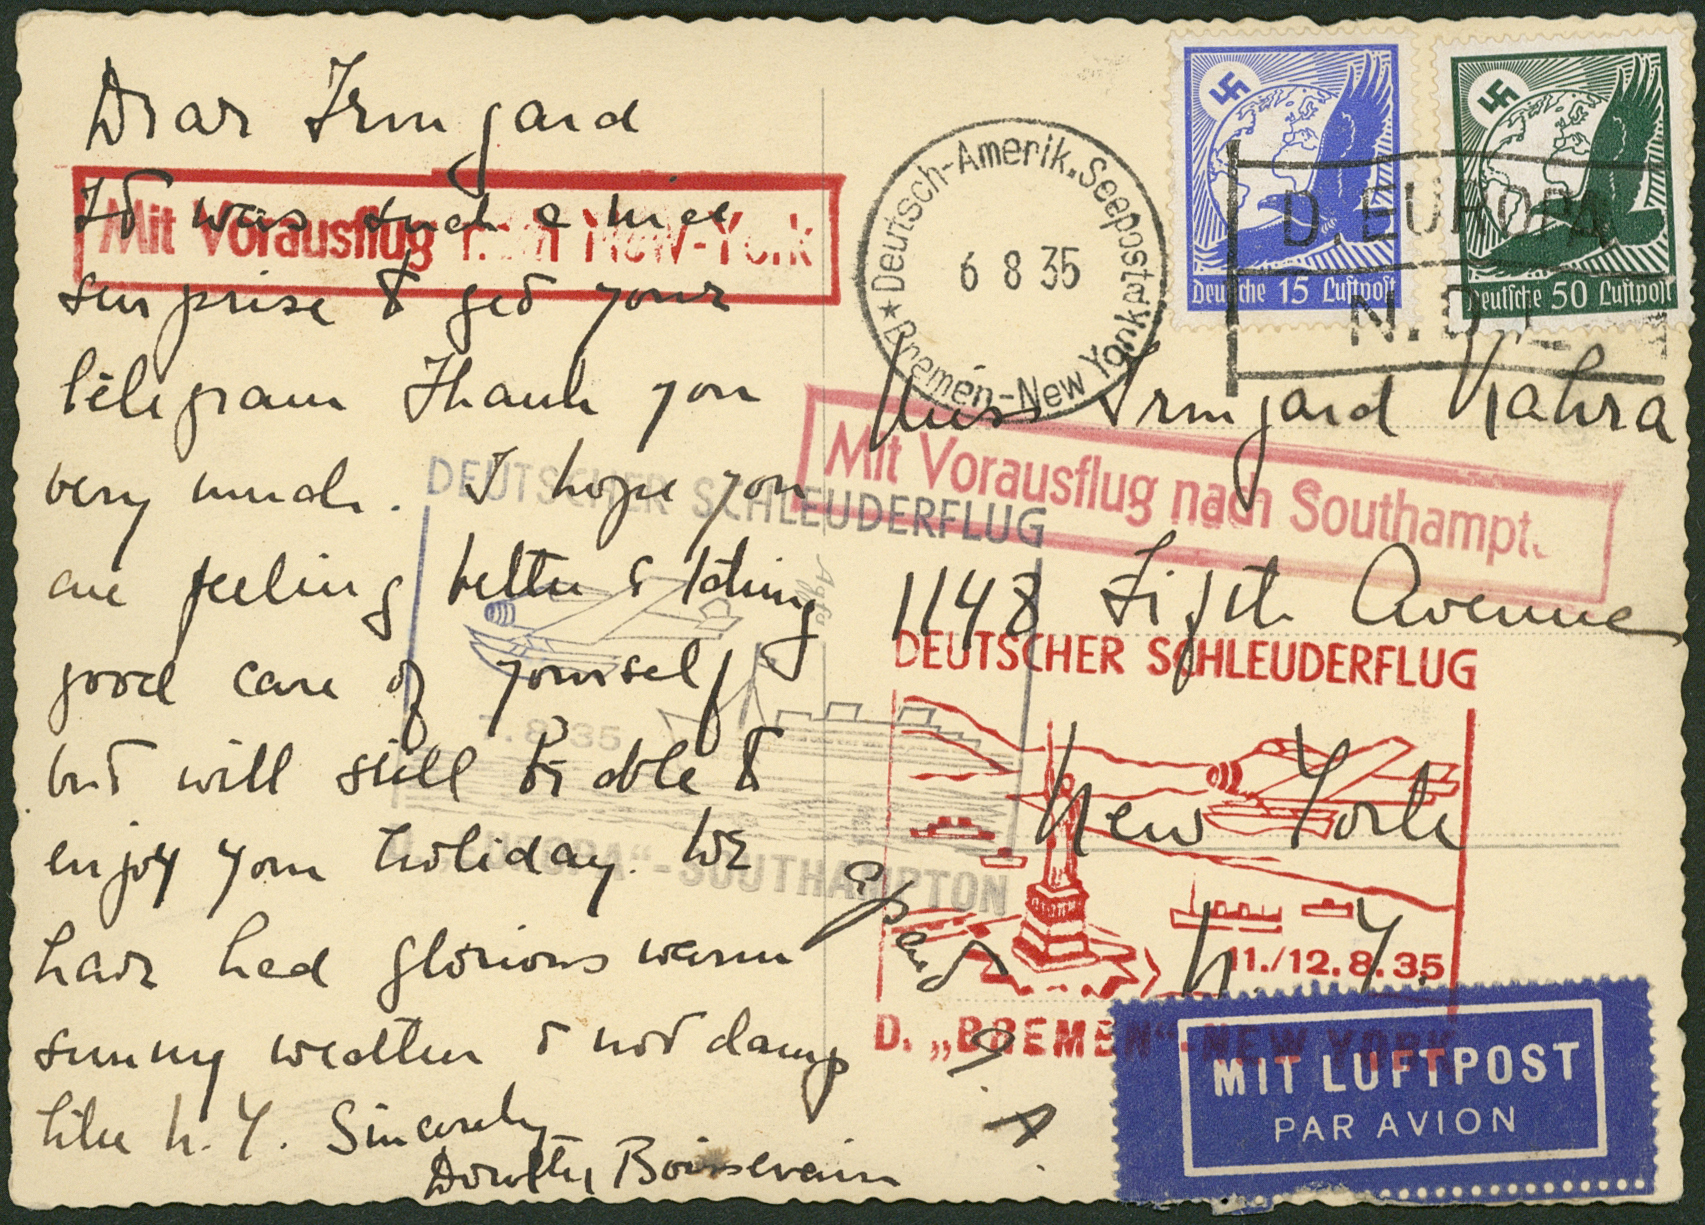 Dear Irmgard
Mit Vorausflug nach New-York
It was such a nice
surprise to get your
telegram Thank you
very much. I hope you
are feeling better & taking
good care of yourself
but will still be able to
enjoy your holiday. We
have had glorious warm
sunny weather & not damp
like N.Y. Sincerely
Dorothy Boissevain
★ Deutsch-Amerik. Seepost
Bremen-New York
6 8 35
Deutsche 15 Luftpost
Deutsche 50 Luftpost
D. EUROPA
N.D.L.
Miss Irmgard
Mit Vorausflug nach Southampt.
1148 Fifth Avenue
New York
N.Y.
U.S.A.
DEUTSCHER SCHLEUDERFLUG
7.8.35
D. „EUROPA“-SOUTHAMPTON
Agfa
DEUTSCHER SCHLEUDERFLUG
11./12.8.35
D. „BREMEN“-NEW YORK
MIT LUFTPOST
PAR AVION